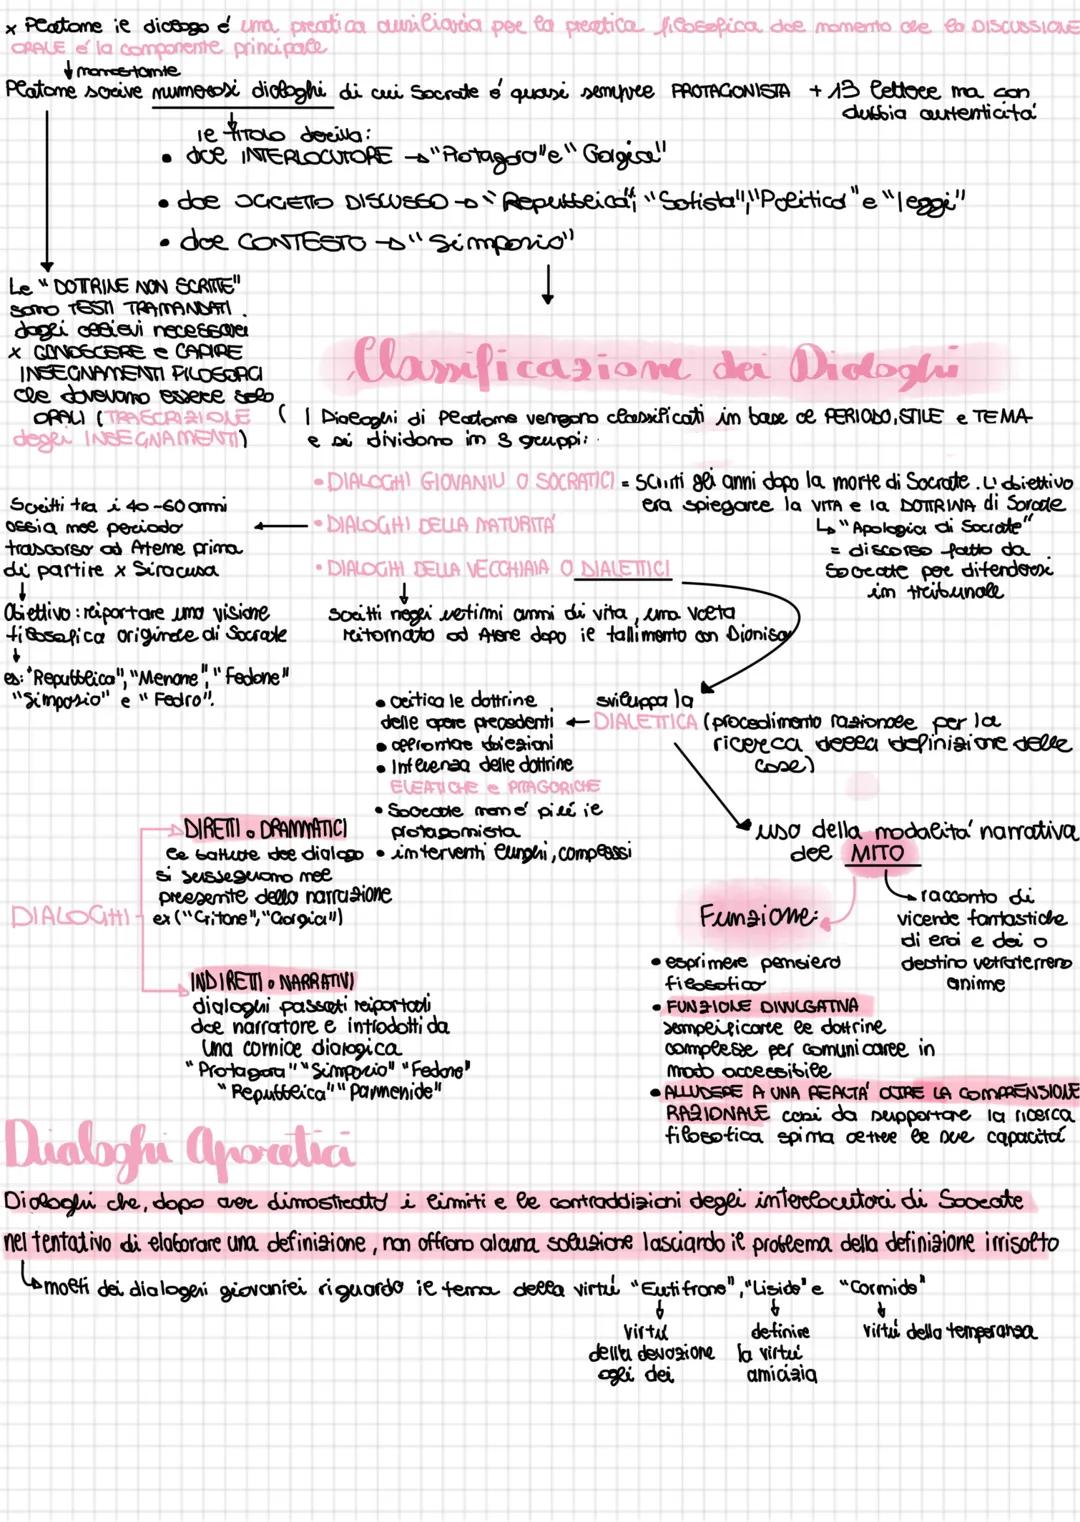 x Platone il dialogo é una pratica auxiliaria per la pratica filosofica dal momento che la DISCUSSIONE
ORALE é la componente principale
nonostante
Platone scrive numerosi dialoghi di cui Socrate é quasi sempre PROTAGONISTA + 13 lettere ma con
dubbia autenticita'
il TITOLO deriva:
• dal INTERLOCUTORE → "Protagora" e "Gorgia"
• dal OGGETTO DISCUSSO → "Repubblica", "Sofista", "Politico" e "leggi"
• dal CONTESTO → "Simposio"
Le "DOTTRINE NON SCRITTE"
sono TESTI TRAMANDATI
dagli allievi necessari
x CONOSCERE e CAPIRE
INSEGNAMENTI FILOSOFICI
che dovevano essere solo
ORALI (TRASCRIZIONE
degli INSEGNAMENTI)
Classificazione dei Dialoghi
I Dialoghi di Platone vengono classificati in base al PERIODO, STILE e TEMA
e si dividono in 3 gruppi:
• DIALOGHI GIOVANILI O SOCRATICI = scritti gli anni dopo la morte di Socrate. L'obiettivo
era spiegare la VITA e la DOTTRINA di Socrate
↳ "Apologia di Socrate"
= discorso fatto da
Socrate per difendersi
in tribunale
• DIALOGHI DELLA MATURITA'
Scritti tra i 40-60 anni
ossia nel periodo
trascorso ad Atene prima
di partire x Siracusa
Obiettivo: riportare una visione
filosofica originale di Socrate
es: "Repubblica", "Menone", "Fedone"
"Simposio" e "Fedro".
• DIALOGHI DELLA VECCHIAIA O DIALETTICI
scritti negli ultimi anni di vita, una volta
ritornato ad Atene dopo il fallimento con Dionisio
sviluppa la
DIALETTICA (procedimento razionale per la
ricerca della definizione delle
cose)
• critica le dottrine
delle opere precedenti
• affrontare obiezioni
• Influenza delle dottrine
ELEATICHE e PITAGORICHE
• Socrate non é piú il
protagonista
• interventi lunghi, complessi
uso della modalita' narrativa
del MITO
racconto di
vicende fantastiche
di eroi e dei o
destino ultraterreno
anime
Funzione:
• esprimere pensiero
filosofico
• FUNZIONE DIVULGATIVA
semplificare le dottrine
complesse per comunicare in
modo accessibile
• ALLUDERE A UNA REALTA' OLTRE LA COMPRENSIONE
RAZIONALE cosi da supportare la ricerca
filosofica spinta oltre le sue capacitá
DIALOGHI
DIRETTI o DRAMMATICI
le battute del dialogo
si susseguono nel
presente della narrazione
ex ("Critone", "Gorgia")
INDIRETTI o NARRATIVI
dialoghi passati riportati
dal narratore e introdotti da
una cornice dialogica
"Protagora" "Simposio" "Fedone"
"Repubblica" "Parmenide"
Dialoghi Aporetici
Dialoghi che, dopo aver dimostrato i limiti e le contraddizioni degli interlocutori di Socrate
nel tentativo di elaborare una definizione, non offrono alcuna soluzione lasciando il problema della definizione irrisolto
↳ molti dei dialoghi giovanili riguardo il tema della virtú "Eutifrone", "Liside" e "Carmide"
virtú
della devozione
agli dei
definire
la virtú
amicizia
virtú della temperanza